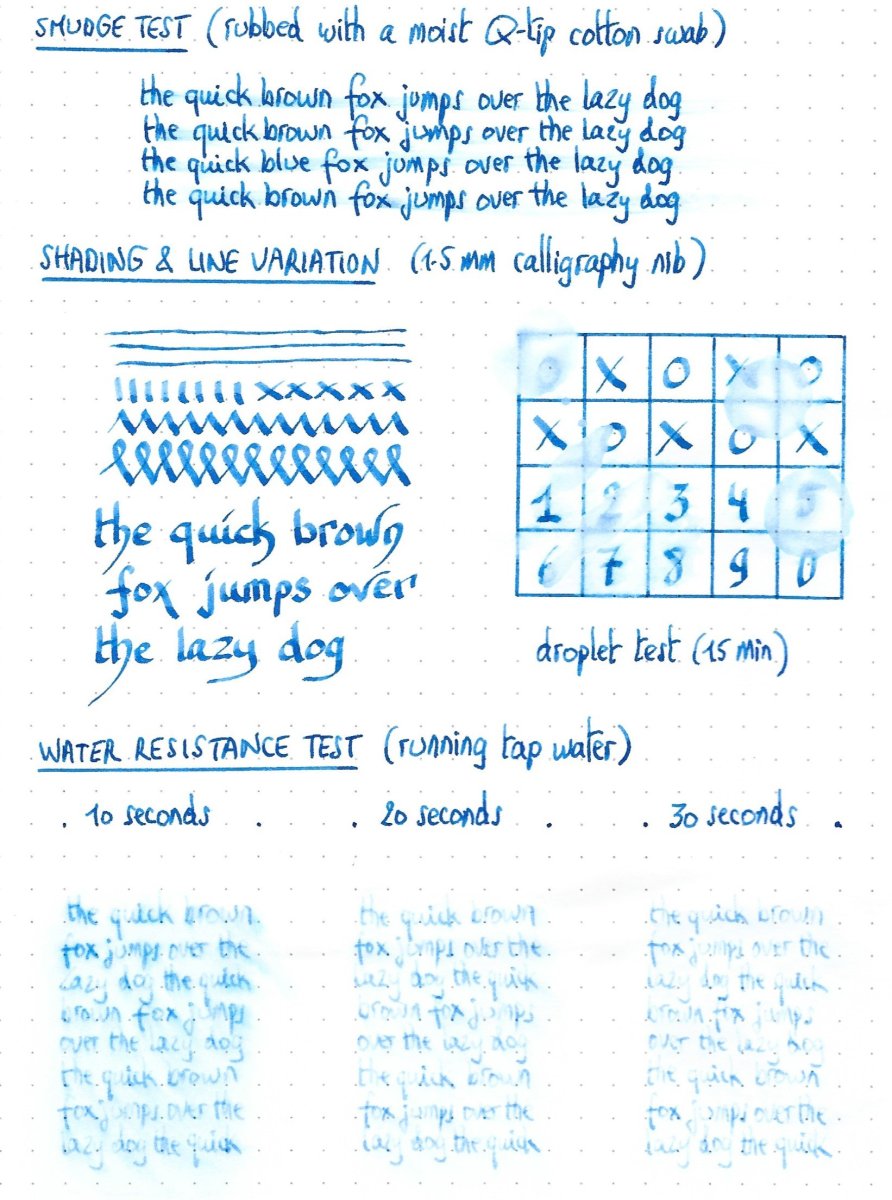 SMUDGE TEST (rubbed with a moist Q-tip cotton swab)
the quick brown fox jumps over the lazy dog
the quick brown fox jumps over the lazy dog
the quick blue fox jumps over the lazy dog
the quick brown fox jumps over the lazy dog
SHADING & LINE VARIATION (1.5 mm calligraphy nib)
the quick brown
fox jumps over
the lazy dog
O X O X O
X O X O X
1 2 3 4 5
6 7 8 9 0
droplet test (15 min)
WATER RESISTANCE TEST (running tap water)
10 seconds 20 seconds 30 seconds
the quick brown the quick brown the quick brown
fox jumps over the fox jumps over the fox jumps over the
lazy dog the quick lazy dog the quick lazy dog the quick
brown fox jumps brown fox jumps brown fox jumps
over the lazy dog over the lazy dog over the lazy dog
the quick brown the quick brown the quick brown
fox jumps over the fox jumps over the fox jumps over the
lazy dog the quick lazy dog the quick lazy dog the quick